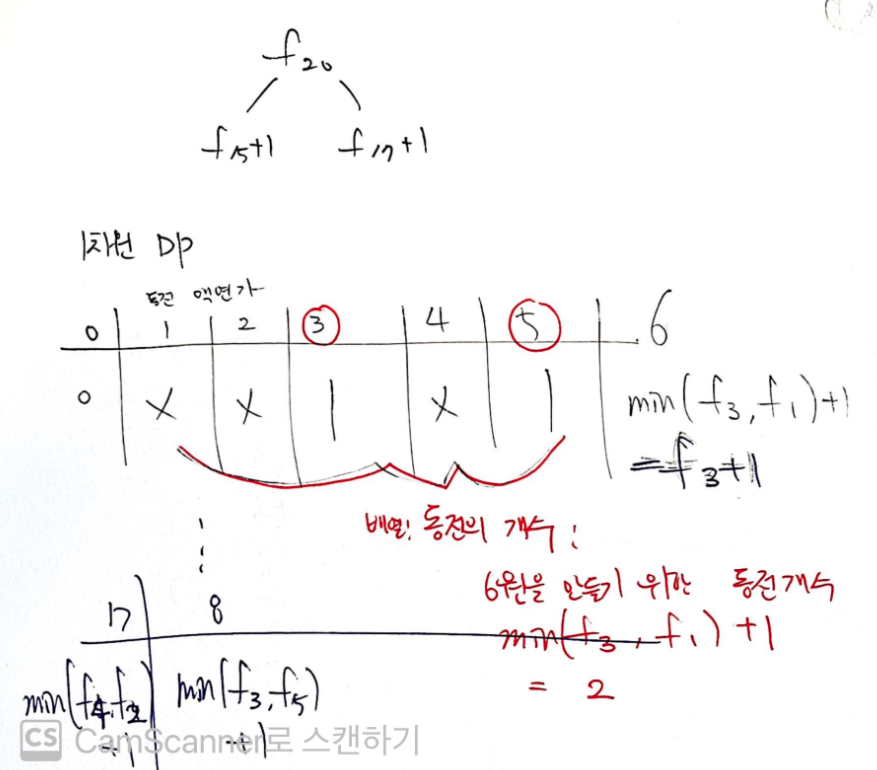 f₂₀
f₁₅+1 f₁₇+1
1차원 DP
동전 액면가
0 1 2 3 4 5 6
0 X X 1 X 1 min(f₃, f₁)+1
=f₃+1
배열: 동전의 개수:
6원을 만들기 위한 동전개수
min(f₃, f₁)+1
= 2
17 8
min(f₄, f₂) min(f₃, f₅)
+1 +1
CS CamScanner로 스캔하기